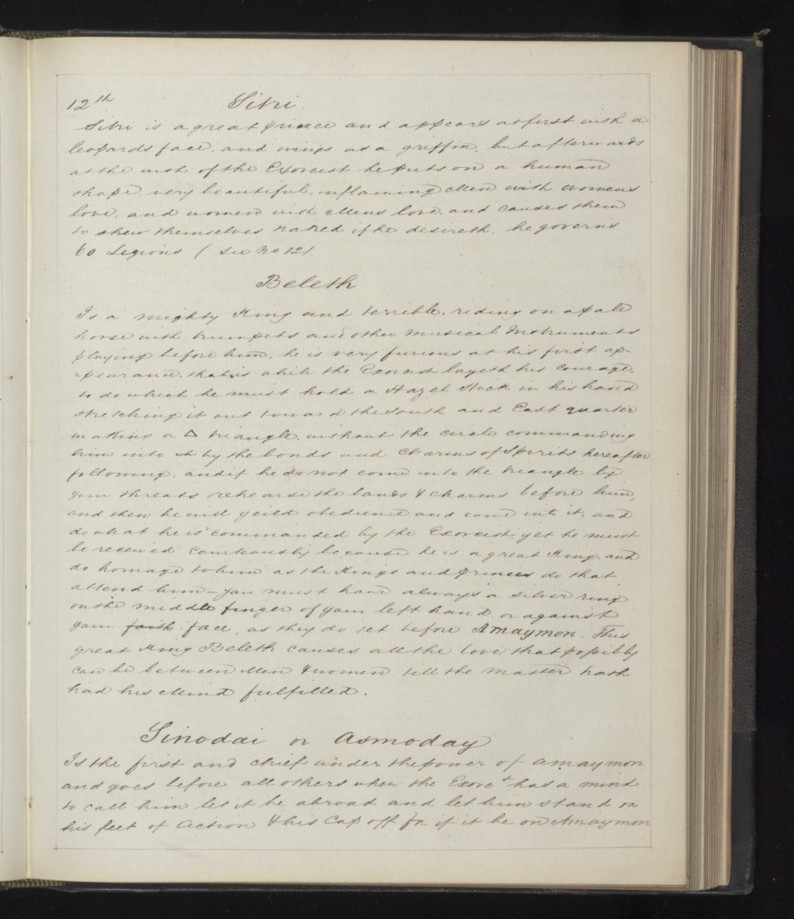 12th Sitri.
Sitri is a great prince and appears at first with a
leopards face, and wings as a griffin, but afterwards
at the wish of the Exorcist he puts on a human
shape very beautiful, inflaming Men with womens
love, and women with Mens love, and causes them
to shew themselves naked if he desireth, he governs
60 Legions ( See No 12)
Beleth
Is a mighty King and terrible, riding on a pale
horse with trumpets and other musical Instruments
playing before him, he is very furious at his first ap-
-pearance, that is while the Exorcist layeth his courage,
to do which he must hold a Hazel Stick in his hand
stretching it out toward the South and East quarter
making a △ triangle, without the circle commanding
him into it by the bonds and Charms of Spirits hereafter
following, and if he do not come into the triangle by
your threats rehearse the bonds & charms before him,
and then he will yeild obedience and come into it, and
do what he is commanded by the Exorcist, yet he must
be received Courteously because he is a great King, and
do homage to him as the Kings and princes do that
attend him - you must have always a silver ring
on the middle finger of your left hand, or against
your face, as they do yet before Amaymon. This
great King Beleth causes all the love that possibly
can be between Men & women till the master hath
had his Mind fulfilled.
Sinodai or Asmoday
Is the first and chief under the power of amaymon
and goes before all others when the Exorct has a mind
to call him let it be abroad and let him stand on
his feet of Action & his Cap off for if it be on Amaymon